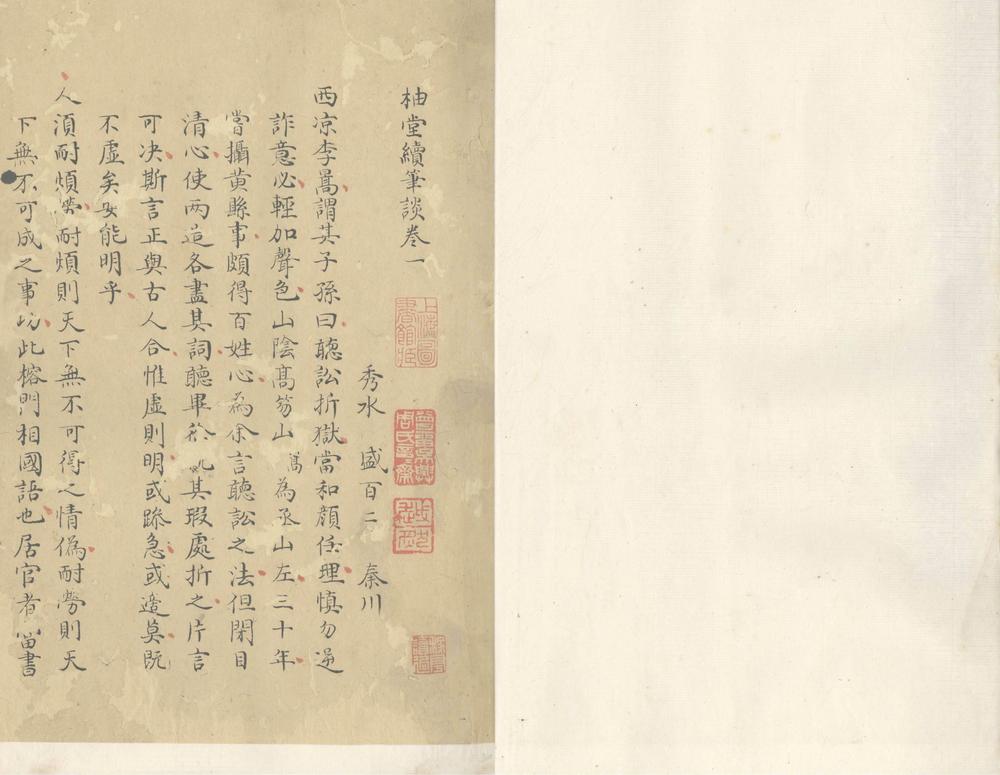 柚堂續筆談卷一
秀水 盛百二 秦川
西凉李暠謂其子孫曰聽訟折獄當和顔任理慎勿逆
詐意必輕加聲色山陰髙笏山 為丞山左三十年
嘗攝黄縣事頗得百姓心為余言聽訟之法但閉目
清心使两造各盡其詞聽畢 其瑕處折之片言
可决斯言正與古人合惟虛則明或躁急或 莫既
不虛矣安能明乎
人須耐煩勞耐煩則天下無不可得之情偽耐勞則天
下無不可成之事 此榕門相國語也居官者當書
上海圖書館藏